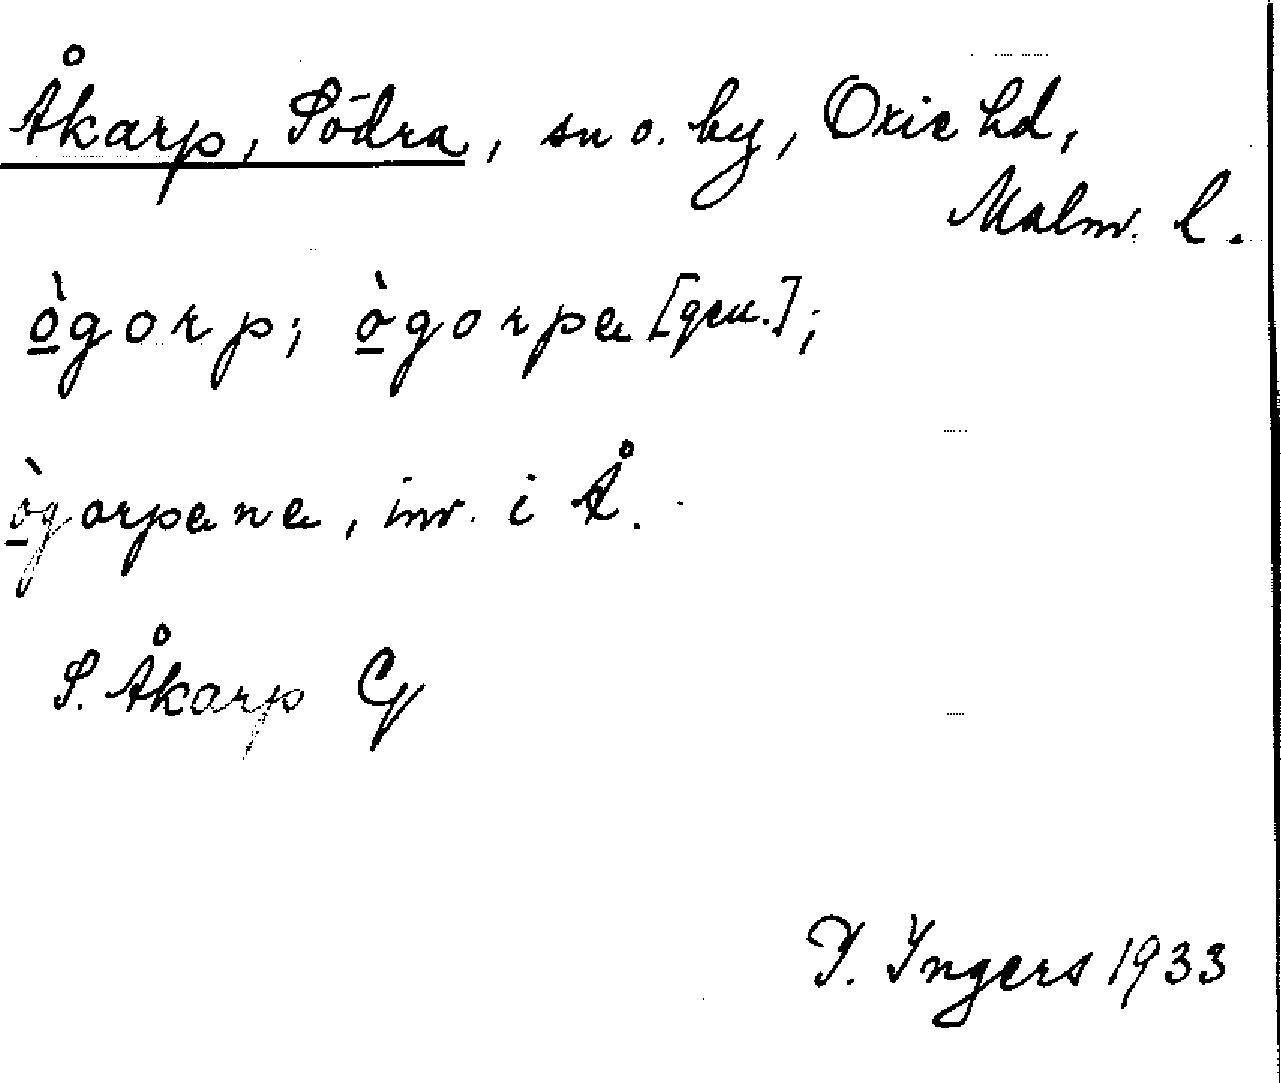 Åkarp, Södra, sn o. by, Oxie hd,
Malm. l.
ò̲gorp; ò̲gorpa [gen.];
ò̲gorpana, inv. i Å.
S. Åkarp Cy
I. Ingers 1933